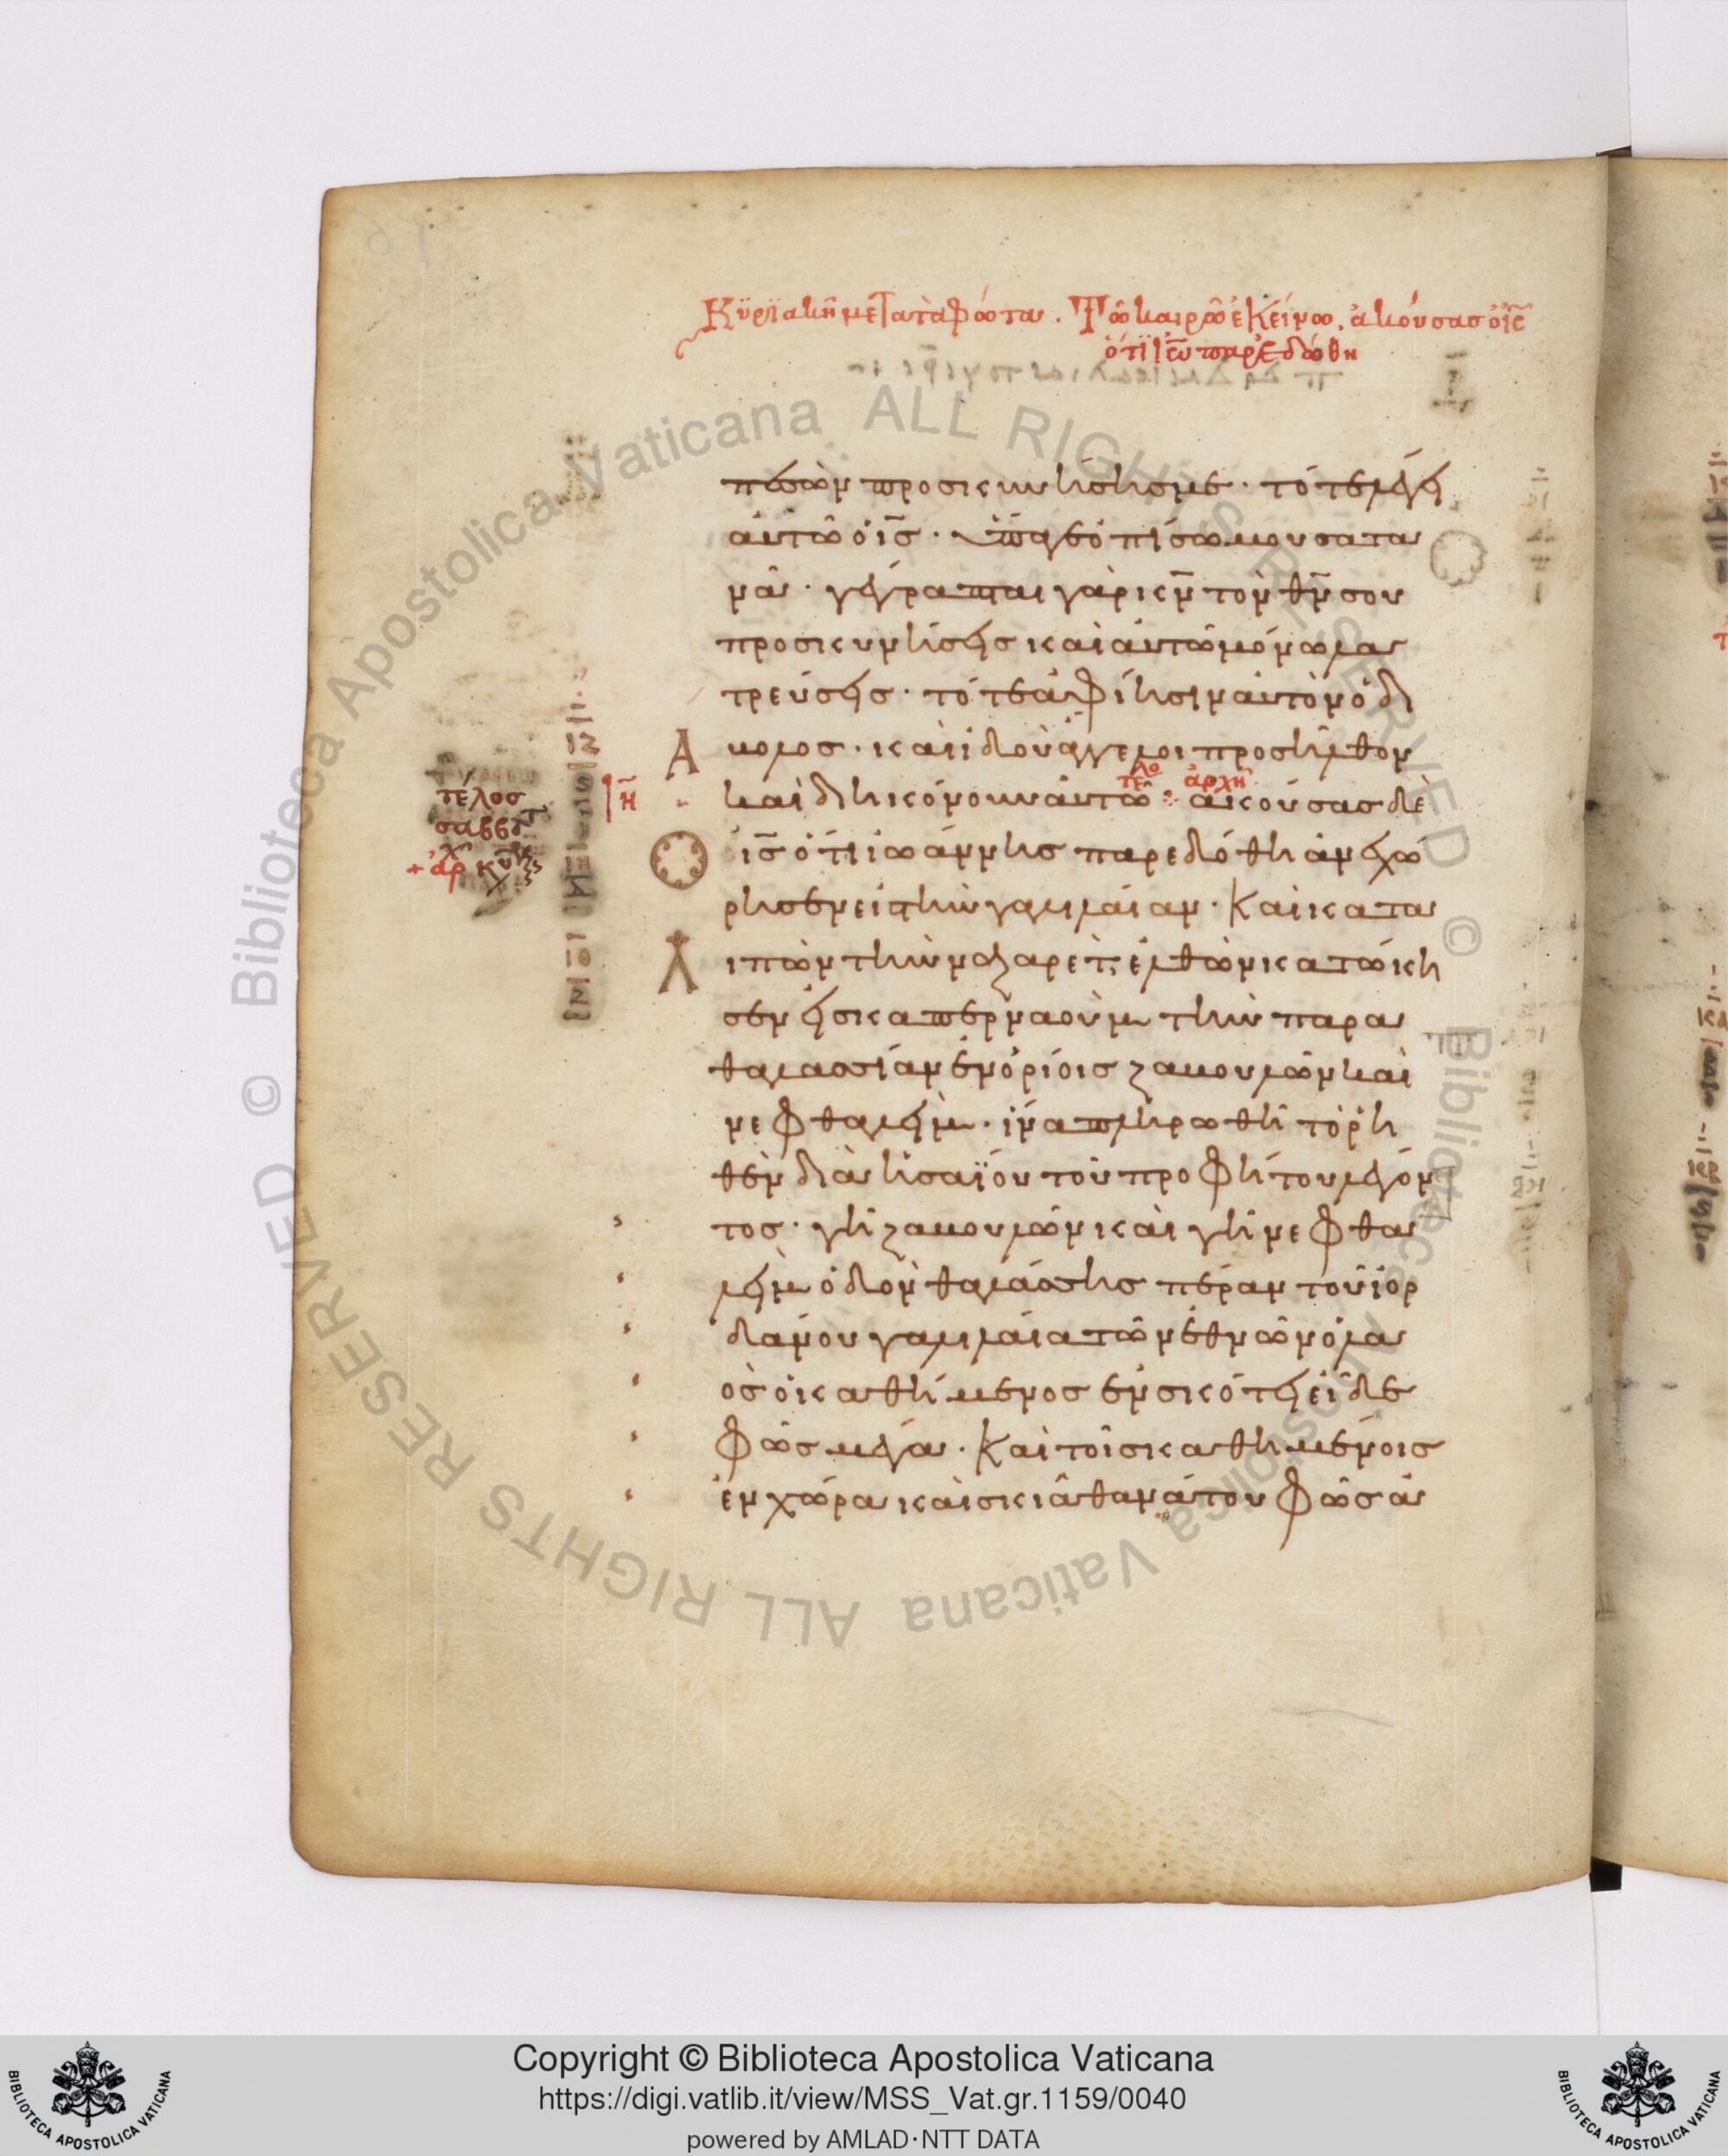 Κυριακῆ μετὰ τὰ φῶτα. Τῶ καιρῶ ἐκείνω, ἀκούσας ὁ ἰς
ὅτι ἰω παρεδόθη
πεσὼν προσκυνήσησμε · τότε λέγει
αὐτῶ ὁ ἰς · ὕπαγε ὀπίσω μου σατα
νᾶ · γέγραπται γὰρ κν τὸν θν σου
προσκυνήσεις καὶ αὐτῶ μόνω λα
τρεύσεις · τότε ἀφίησιν αὐτὸν ὁ δι
Α κολος · καὶ ἰδοὺ ἄγγελοι προσῆλθον
τελο ἀρχὴ
η καὶ διηκόνουν αὐτῶ : ἀκούσας δὲ
τέλος
σαββτ
+ ἀρχ κυ
ἰς ὅτι ἰωάννης παρεδόθη ἀνεχώ
ρησεν εἰς τὴν γαλιλαίαν · Καὶ κατα
λ ιπὼν τὴν ναζαρὲτ, ἐλθὼν κατώκη
σεν εἰς καπερναοὺμ τὴν παρα
θαλασσίαν ἐν ὁρίοις ζαβουλὼν καὶ
νεφθαλείμ · ἵνα πληρωθῆ τὸ ῥη
θὲν διὰ ἡσαΐου τοῦ προφήτου λέγον
τος · γῆ ζαβουλὼν καὶ γῆ νεφθα
λεὶμ ὁδὸν θαλάσσης πέραν τοῦ ἰορ
δάνου γαλιλαία τῶν ἐθνῶν ὁ λα
ὸς ὁ καθήμενος ἐν σκότει εἶδε
φῶς μέγα · Καὶ τοῖς καθημένοις
ἐν χώρα καὶ σκιᾶ θανάτου φῶς ἀ
Copyright © Biblioteca Apostolica Vaticana
https://digi.vatlib.it/view/MSS_Vat.gr.1159/0040
powered by AMLAD·NTT DATA
BIBLIOTECA APOSTOLICA VATICANA
BIBLIOTECA APOSTOLICA VATICANA
© Biblioteca Apostolica Vaticana ALL RIGHTS RESERVED © Biblioteca Apostolica Vaticana ALL RIGHTS RESERVED